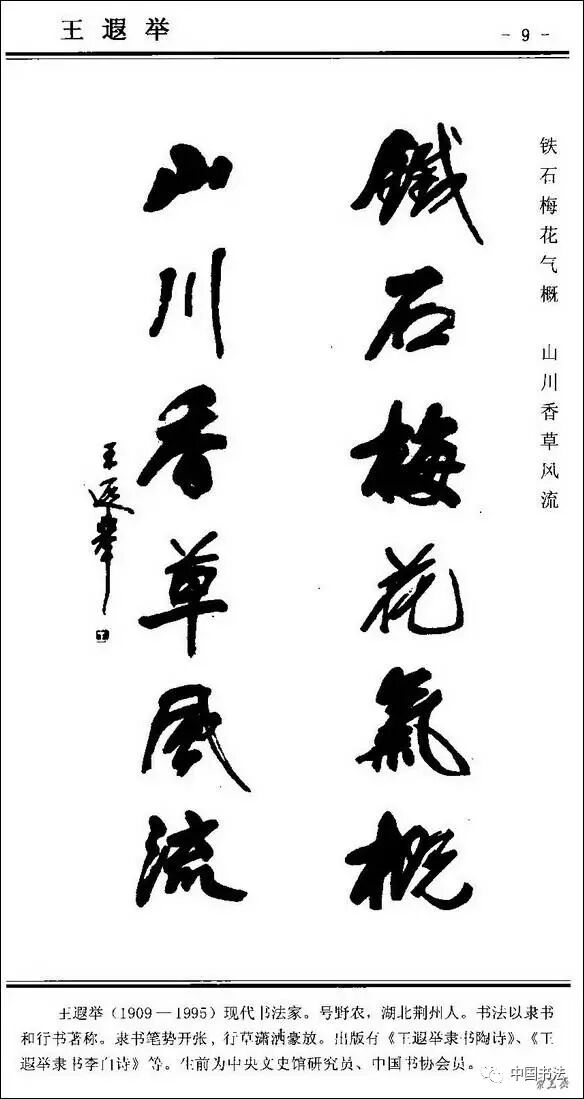 王遐举
- 9 -
铁石梅花气概 山川香草风流
鐵石梅花氣概
山川香草風流
王遐舉
王遐举(1909—1995)现代书法家。号野农,湖北荆州人。书法以隶书
和行书著称。隶书笔势开张,行草潇洒豪放。出版有《王遐举隶书陶诗》、《王
遐举隶书李白诗》等。生前为中央文史馆研究员、中国书协会员。
中国书法